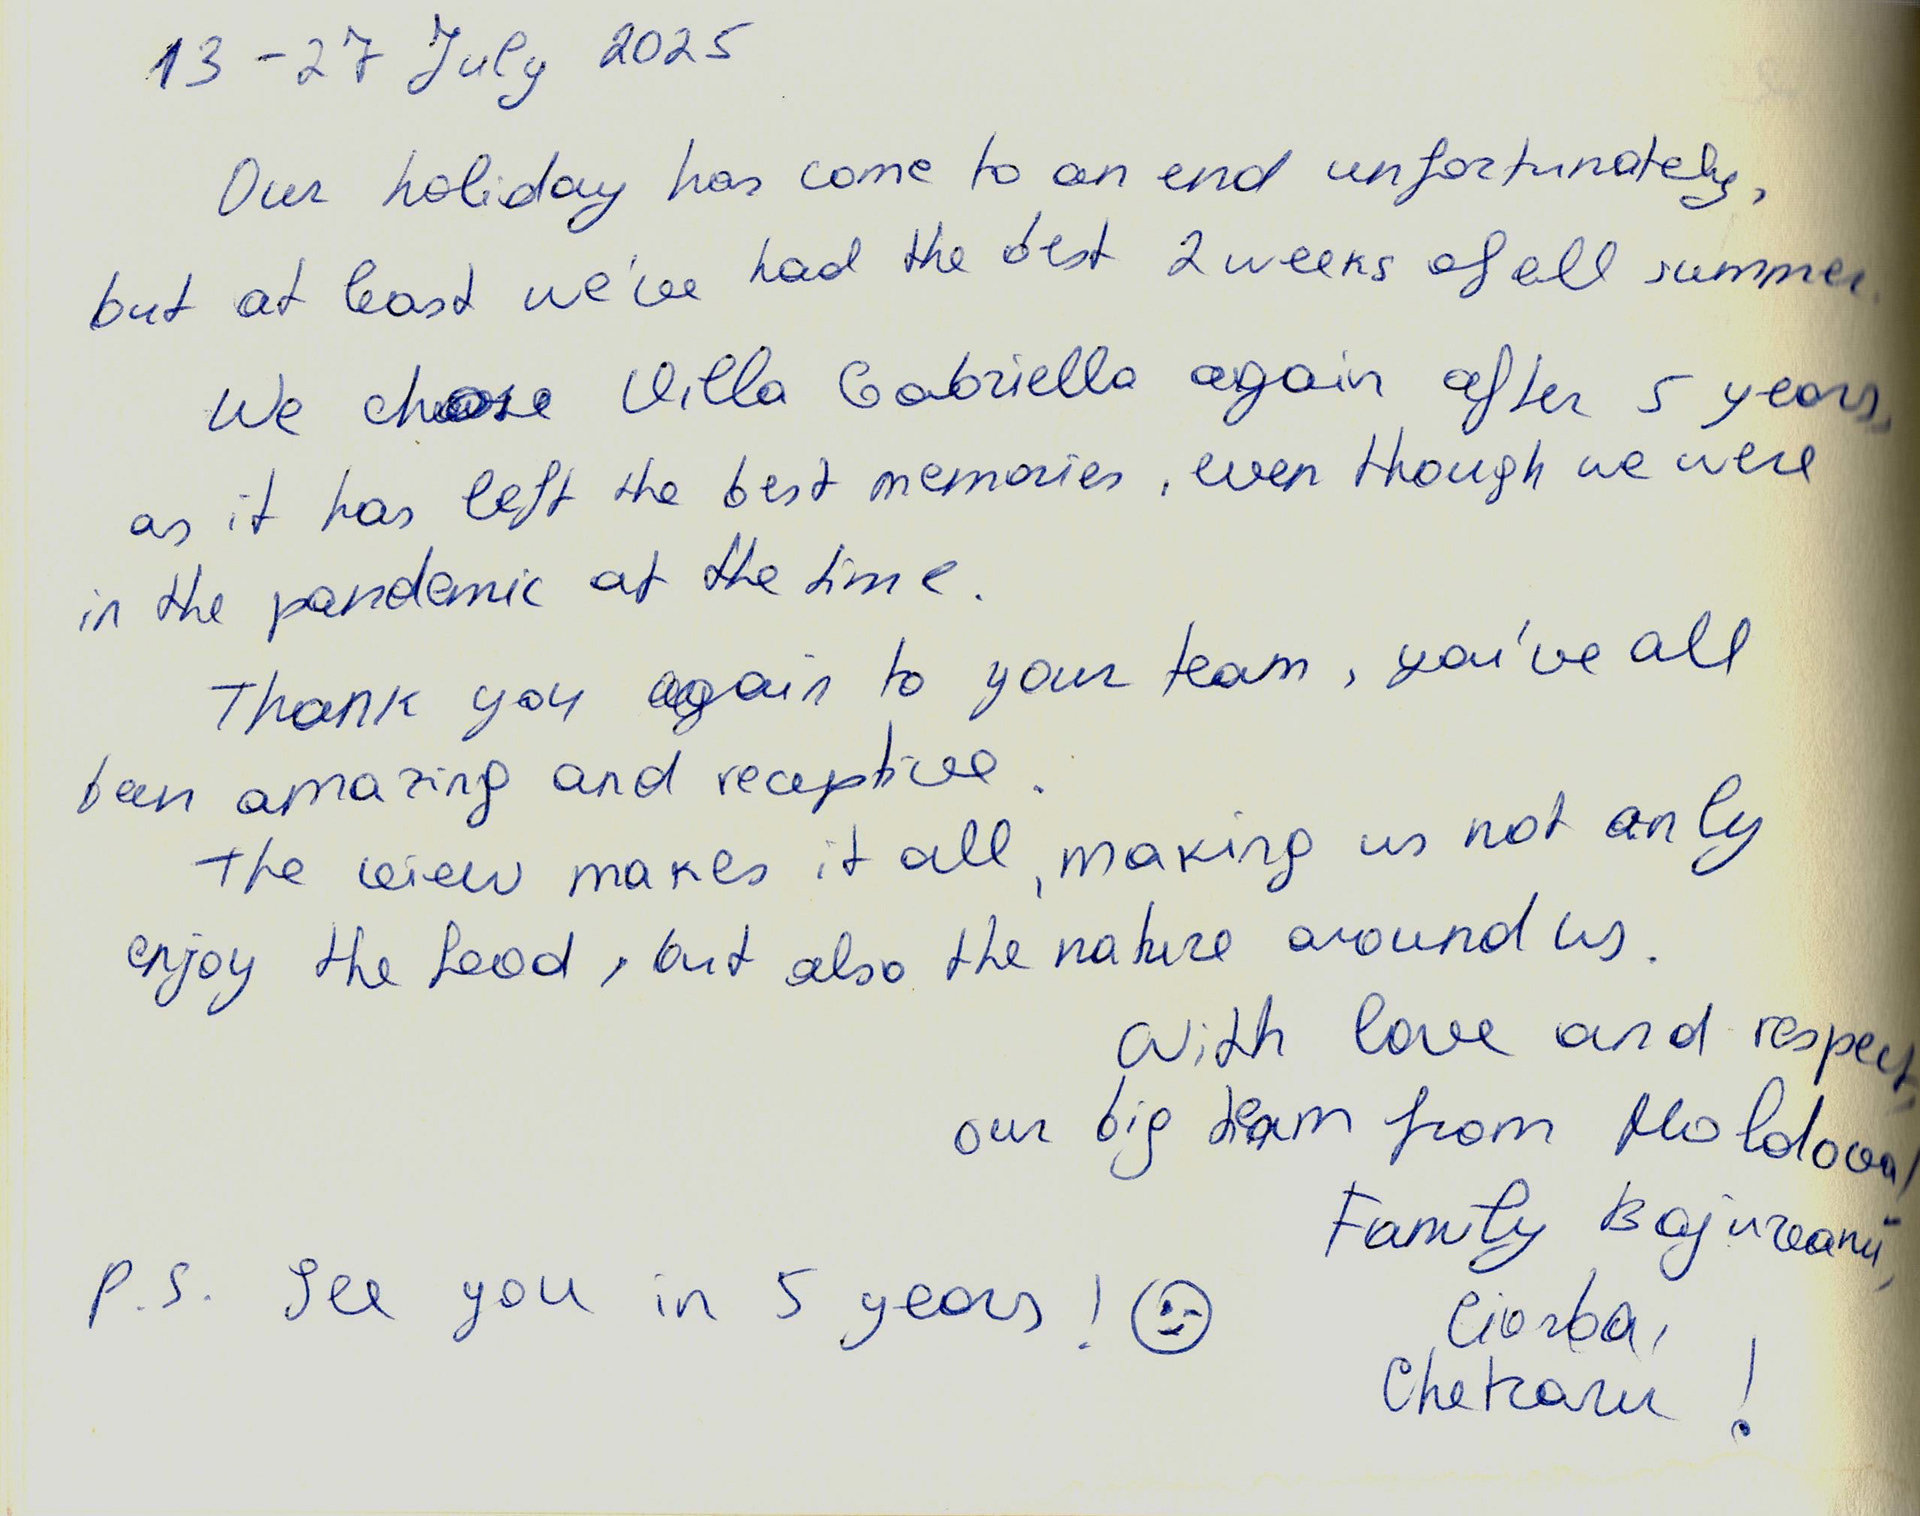 13 - 27 July 2025
Our holiday has come to an end unfortunately,
but at least we've had the best 2 weeks of all summer.
We chose Villa Gabriella again after 5 years,
as it has left the best memories, even though we were
in the pandemic at the time.
Thank you again to your team, you've all
been amazing and receptive.
The view makes it all, making us not only
enjoy the food, but also the nature around us.
With love and respect,
our big team from Moldova!
Family Bajureanu,
Ciorba,
Chetraru!
P.S. See you in 5 years!